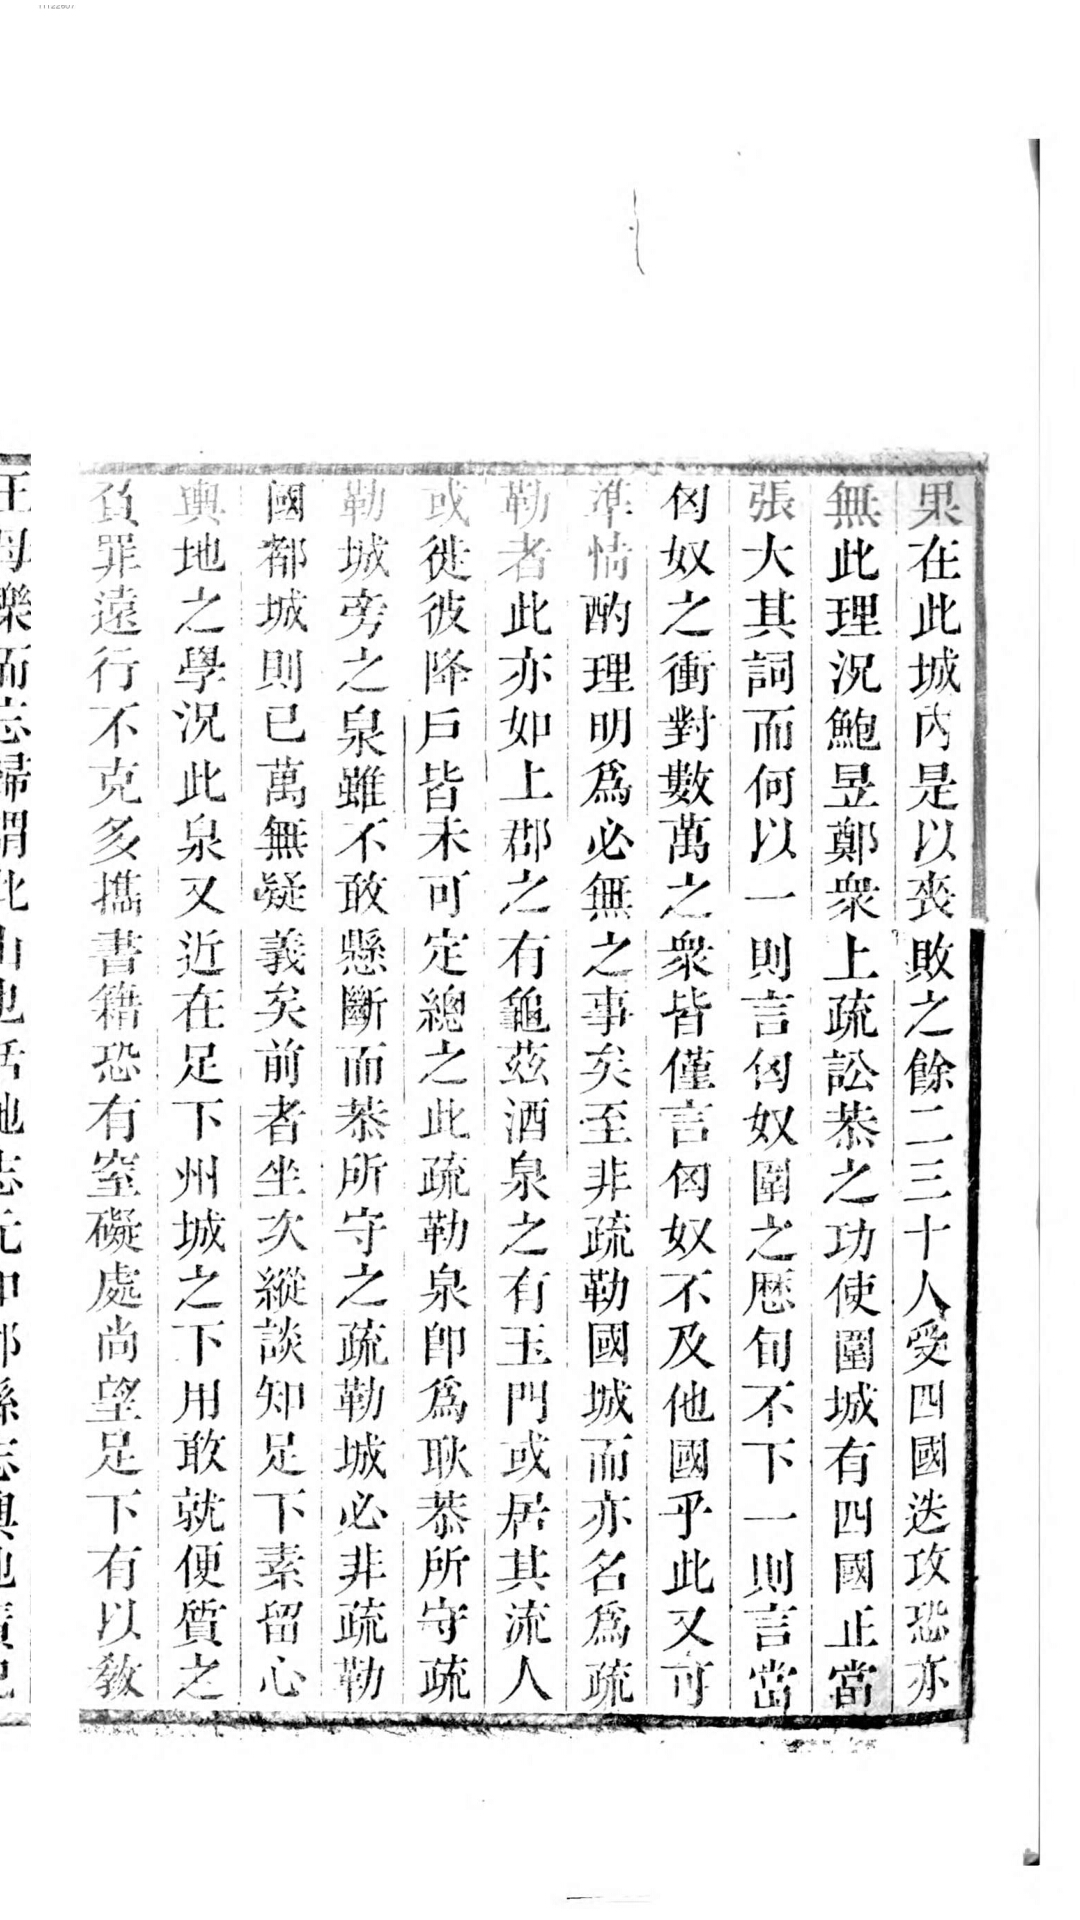 果在此城內是以喪敗之餘二三十人受四國迭攻恐亦
無此理況鮑昱鄭衆上疏訟恭之功使圍城有四國正當
張大其詞而何以一則言匈奴圍之歷旬不下一則言當
匈奴之衝對數萬之衆皆僅言匈奴不及他國乎此又可
準情酌理明爲必無之事矣至非疏勒國城而亦名爲疏
勒者此亦如上郡之有龜茲酒泉之有玉門或居其流人
或徙彼降戶皆未可定總之此疏勒泉即爲耿恭所守疏
勒城旁之泉雖不敢懸斷而恭所守之疏勒城必非疏勒
國都城則已萬無疑義矣前者坐次縱談知足下素留心
輿地之學況此泉又近在足下州城之下用敢就便質之
負罪遠行不克多攜書籍恐有窒礙處尚望足下有以敎